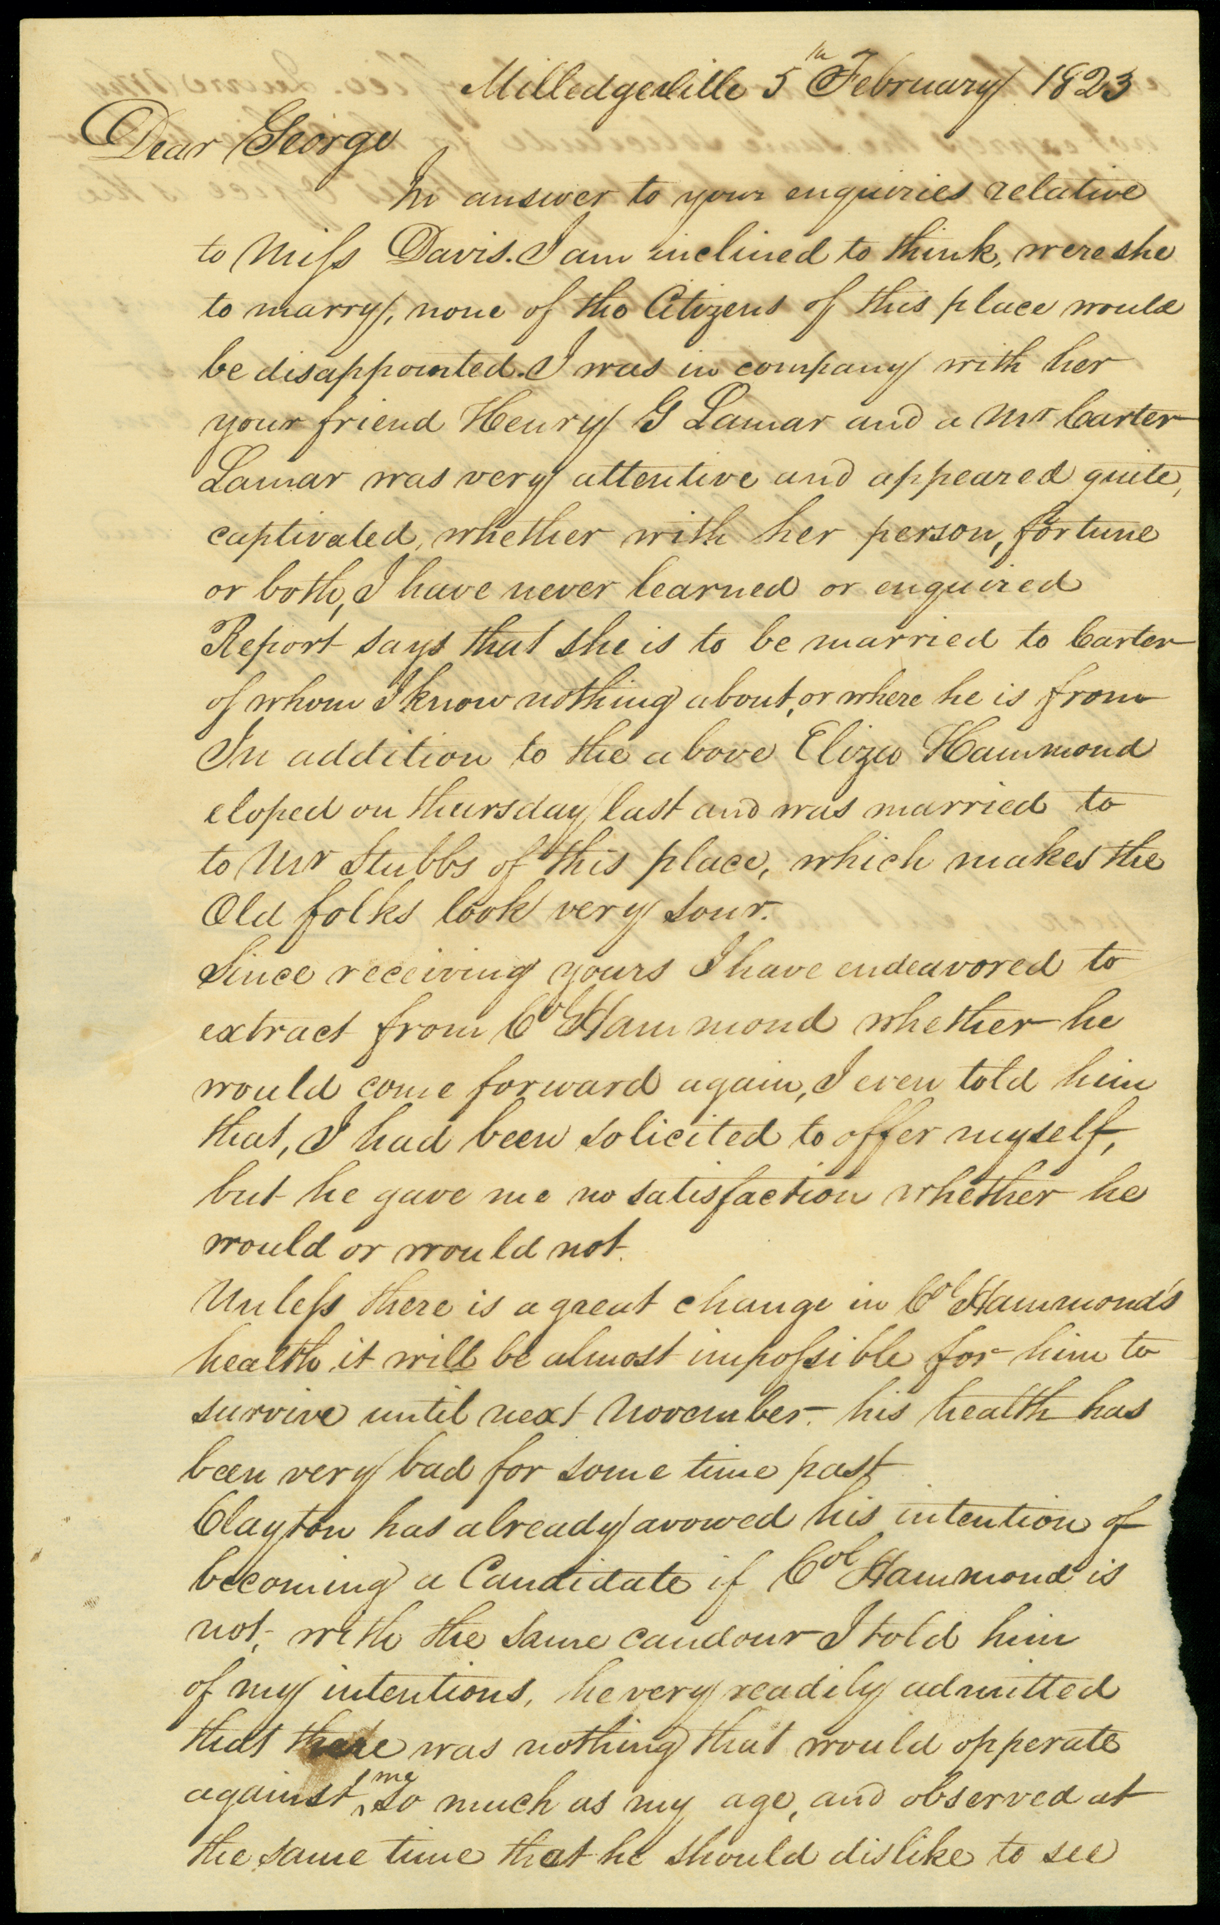 Milledgeville 5th February 1823
Dear George
In answer to your enquiries relative
to Miss Davis. I am inclined to think, were she
to marry, none of the Citizens of this place would
be disappointed. I was in company with her
your friend Henry G Lamar and a Mr Carter
Lamar was very attentive and appeared quite,
captivated, whether with her person, fortune
or both, I have never learned or enquired
Report says that she is to be married to Carter
of whom I know nothing about, or where he is from
In addition to the above Eliza Hammond
eloped on thursday last and was married to
to Mr Stubbs of this place, which makes the
Old folks look very sour.
Since receiving yours I have endeavored to
extract from Col Hammond whether he
would come forward again, I even told him
that, I had been solicited to offer myself,
but he gave me no satisfaction whether he
would or would not.
Unless there is a great change in Col Hammond's
health it will be almost impossible for him to
survive until next November. his health has
been very bad for some time past
Clayton has already avowed his intention of
becoming a Candidate if Col Hammond is
not, with the same candour I told him
of my intentions, he very readily admitted
that there was nothing that would opperate
against me so much as my age, and observed at
the same time that he should dislike to see